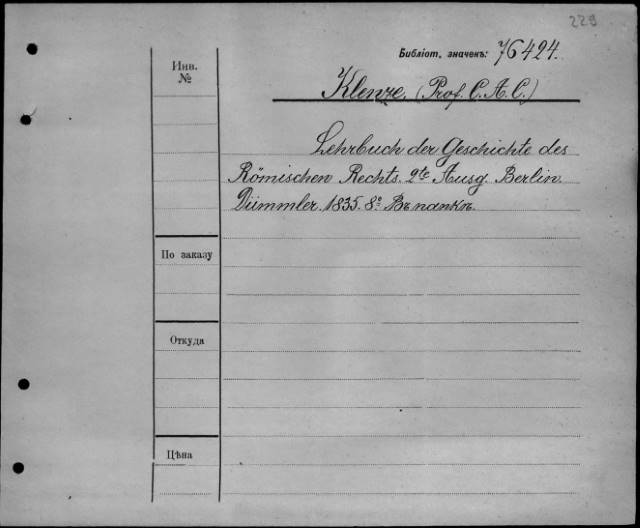 229
Библіот. значекъ: 76424.
Инв.
№
Klenze. (Prof. C. A. C.)
Lehrbuch der Geschichte des
Römischen Rechts. 2te Ausg. Berlin.
Dümmler. 1835. 8º Въ папкѣ.
По заказу
Откуда
Цѣна